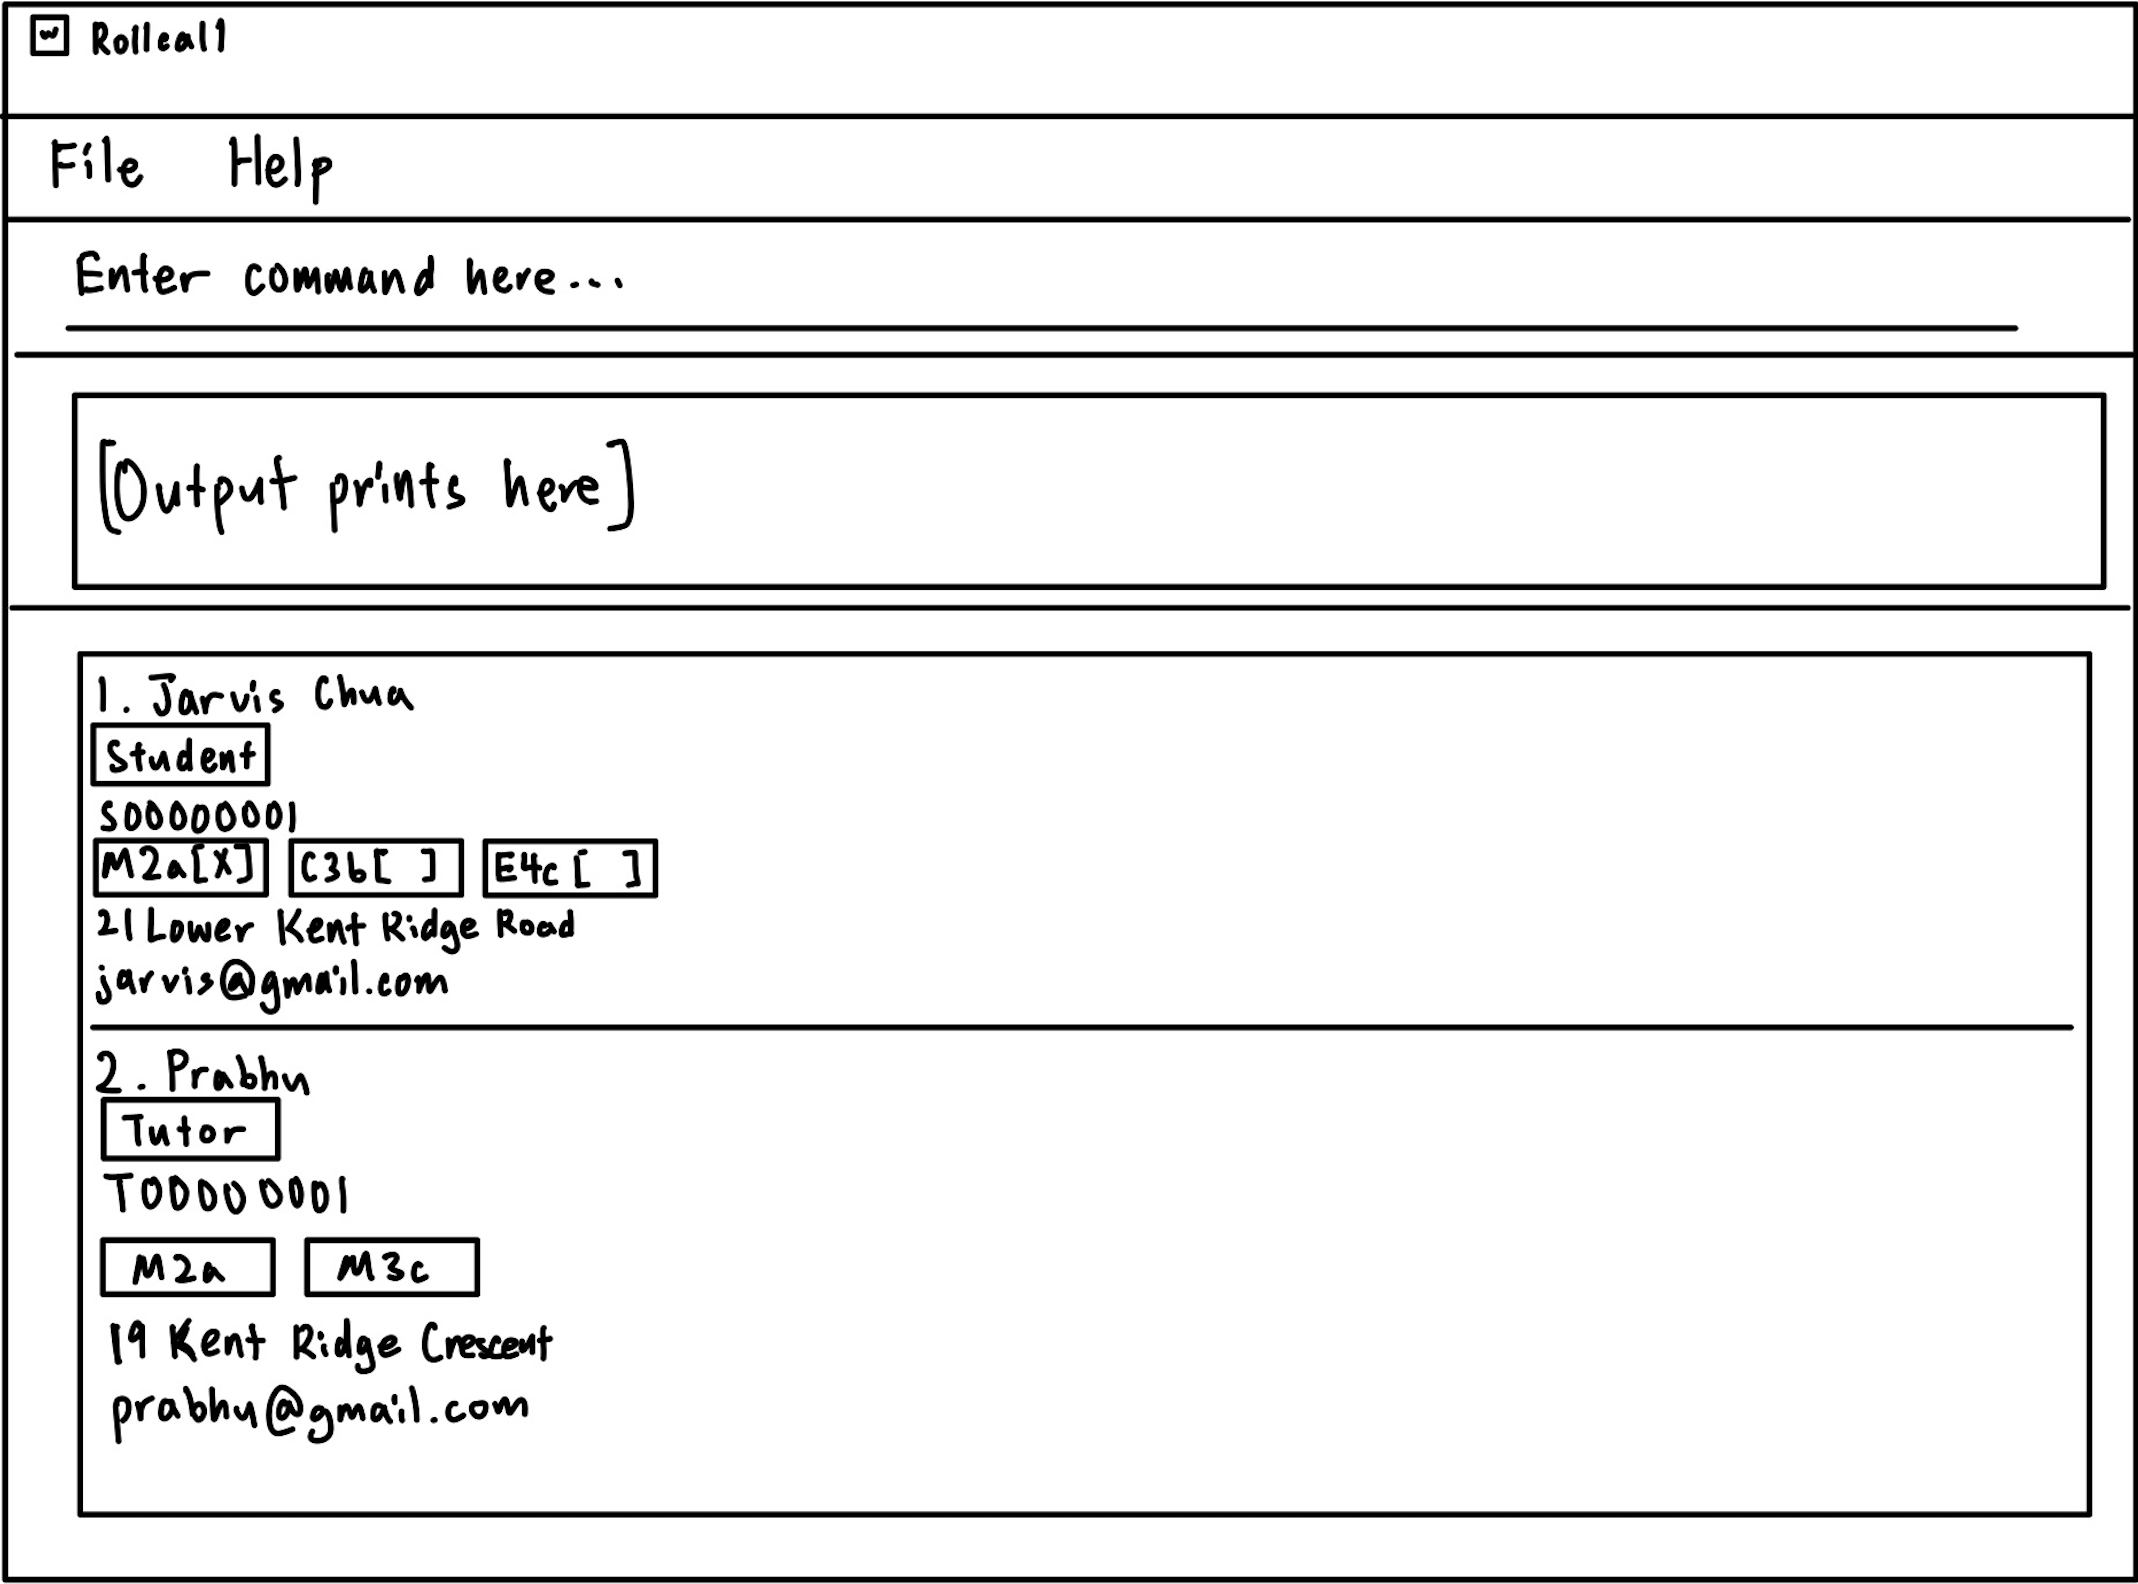 Rollcall
File Help
Enter command here...
[Output prints here]
1. Jarvis Chua
Student
S00000001
M2a[X] C3b[ ] E4c[ ]
21 Lower Kent Ridge Road
jarvis@gmail.com
2. Prabhu
Tutor
T00000001
M2a M3c
19 Kent Ridge Crescent
prabhu@gmail.com